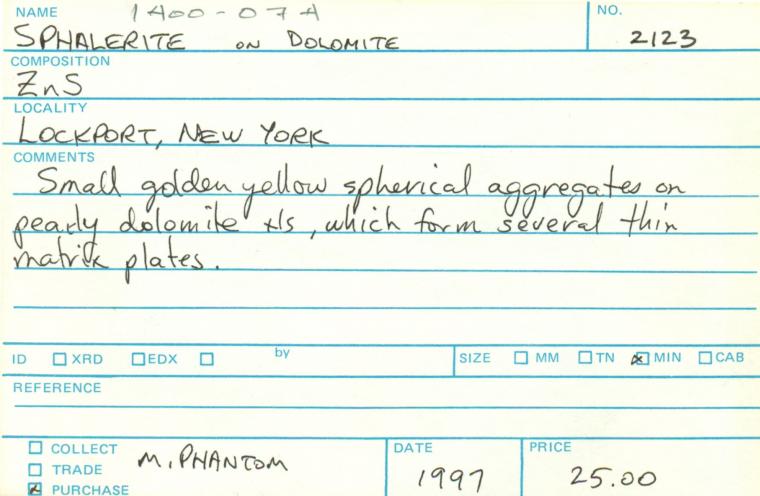 NAME 1400-07A NO.
SPHALERITE ON DOLOMITE 2123
COMPOSITION
ZnS
LOCALITY
LOCKPORT, NEW YORK
COMMENTS
Small golden yellow spherical aggregates on
pearly dolomite xls, which form several thin
matrix plates.
ID XRD EDX by SIZE MM TN MIN CAB
REFERENCE
COLLECT DATE PRICE
TRADE M. PHANTOM 1997 25.00
PURCHASE